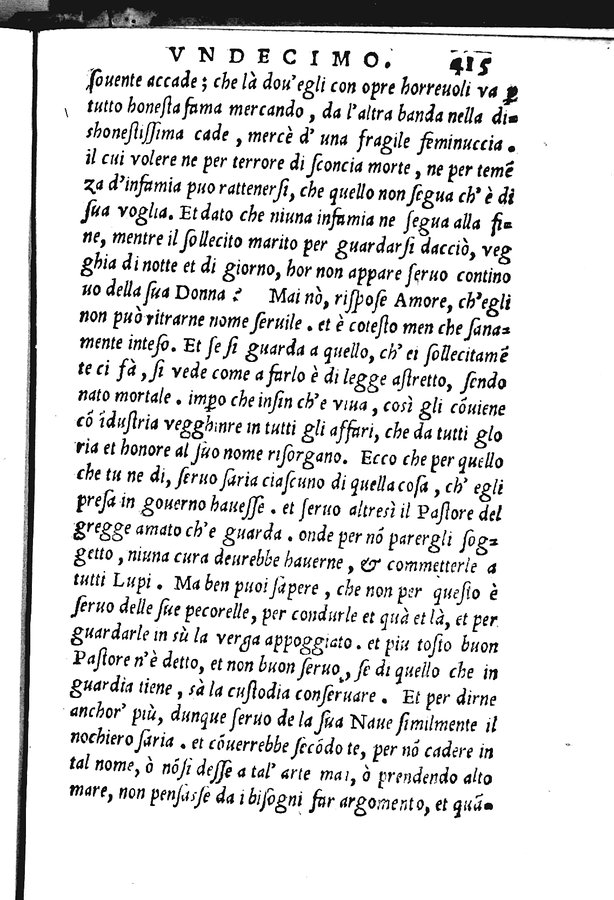 VNDECIMO. 415
ſouente accade; che là dou'egli con opre horreuoli va ꝑ
tutto honeſta fama mercando, da l'altra banda nella di-
shoneſtiſſima cade, mercè d'una fragile feminuccia.
il cui volere ne per terrore di ſconcia morte, ne per temẽ
za d'infamia puo rattenerſi, che quello non ſegua ch'è di
ſua voglia. Et dato che niuna infamia ne ſegua alla fi-
ne, mentre il ſollecito marito per guardarſi dacciò, veg
ghia di notte et di giorno, hor non appare ſeruo contino
uo della ſua Donna? Mai nò, riſpoſe Amore, ch'egli
non può ritrarne nome ſeruile. et è coteſto men che ſana-
mente inteſo. Et ſe ſi guarda a quello, ch'ei ſollecitamẽ
te ci fà, ſi vede come a farlo è di legge aſtretto, ſendo
nato mortale. imꝑo che inſin ch'e viua, così gli cõuiene
cõ ĩduſtria vegghinre in tutti gli affari, che da tutti glo
ria et honore al ſuo nome riſorgano. Ecco che per quello
che tu ne di, ſeruo ſaria ciaſcuno di quella coſa, ch'egli
preſa in gouerno haueſſe. et ſeruo altresì il Paſtore del
gregge amato ch'e guarda. onde per nõ parergli ſog-
getto, niuna cura deurebbe hauerne, & commetterle a
tutti Lupi. Ma ben puoi ſapere, che non per queſto è
ſeruo delle ſue pecorelle, per condurle et quà et là, et per
guardarle in sù la verga appoggiato. et piu toſto buon
Paſtore n'è detto, et non buon ſeruo, ſe di quello che in
guardia tiene, sà la cuſtodia conſeruare. Et per dirne
anchor' più, dunque ſeruo de la ſua Naue ſimilmente il
nochiero ſaria. et cõuerrebbe ſecõdo te, per nõ cadere in
tal nome, ò nõſi deſſe a tal' arte mai, ò prendendo alto
mare, non penſasſe da i biſogni far argomento, et quã-